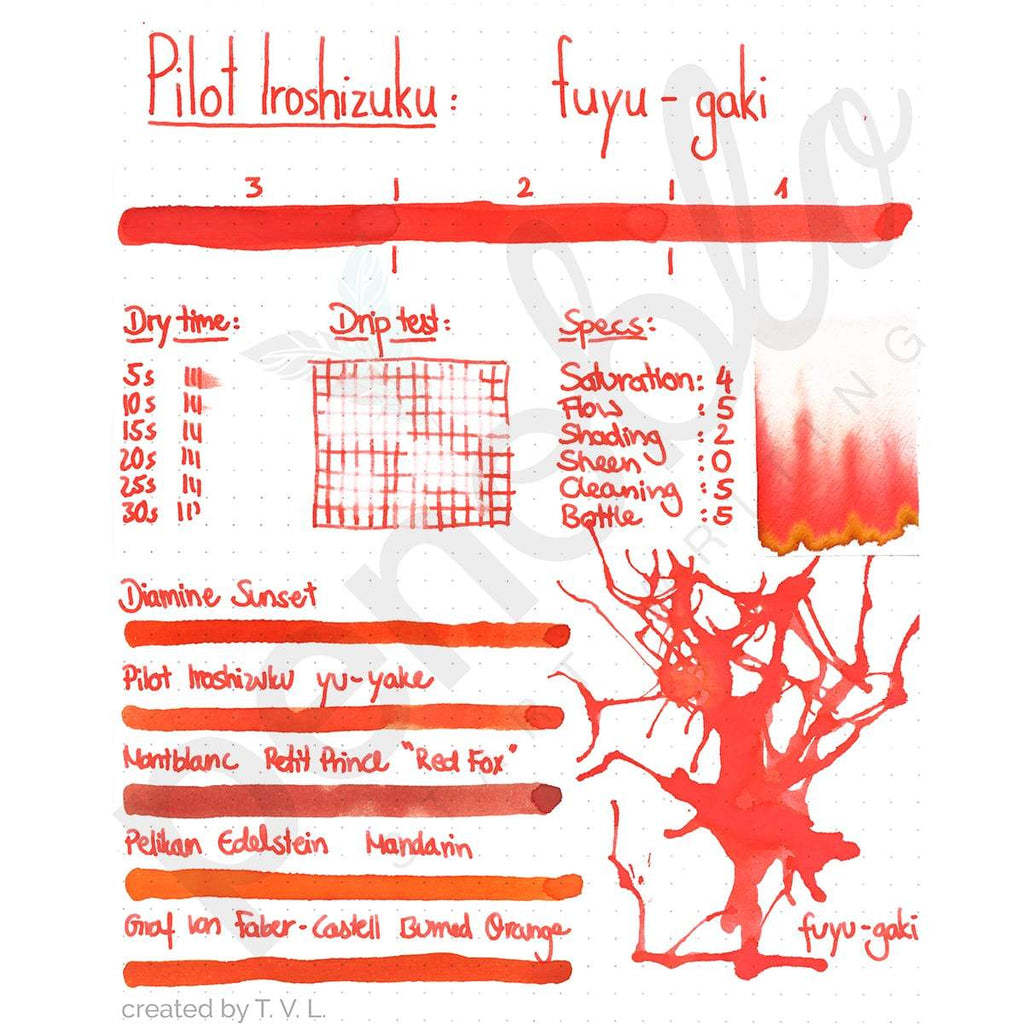 Pilot Iroshizuku: fuyu-gaki
3 | 2 | 1
Dry time:
5s
10s
15s
20s
25s
30s
Drip test:
Specs:
Saturation: 4
Flow : 5
Shading : 2
Sheen : 0
Cleaning : 5
Bottle : 5
Diamine Sunset
Pilot Iroshizuku yu-yake
Montblanc Petit Prince "Red Fox"
Pelikan Edelstein Mandarin
Graf von Faber-Castell Burned Orange
fuyu-gaki
created by T. V. L.
penoblo